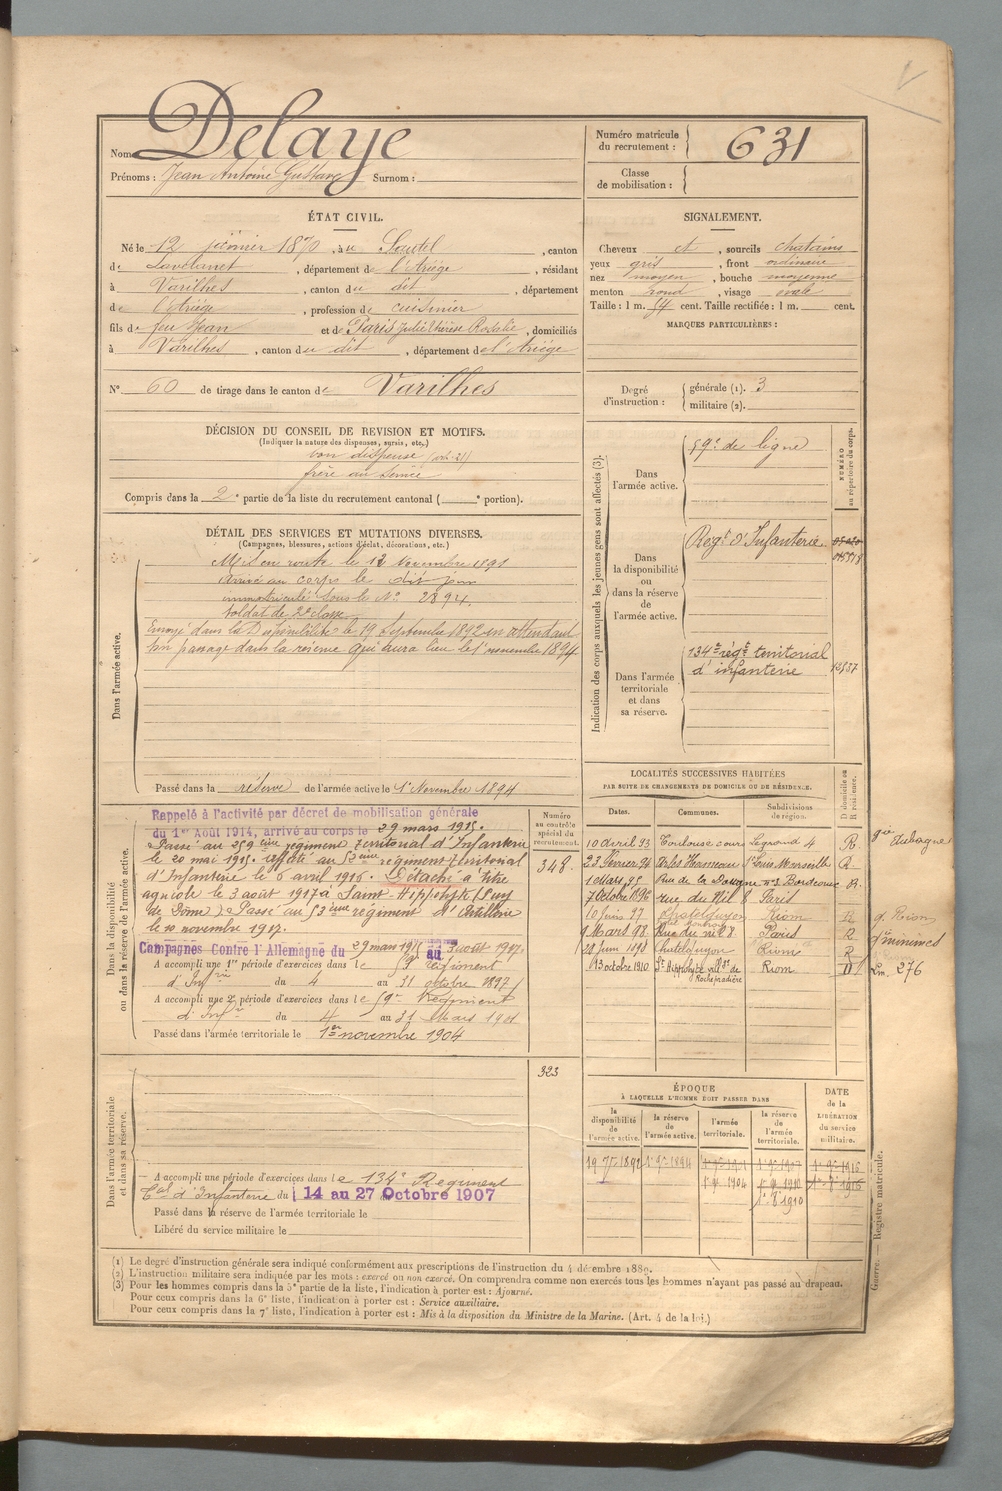 Nom Delaye
Prénoms : Jean Antoine Gustave Surnom :
Numéro matricule du recrutement : 631
Classe de mobilisation :
ÉTAT CIVIL.
Né le 12 1870, à Sautel, canton
de Lavelanet, département de l'Ariège, résidant
à Varilhes, canton du dit, département
de l'Ariège, profession de cuisinier
fils de feu Jean et de Paris Julie Thérèse Rosalie, domiciliés
à Varilhes, canton du dit, département de l'Ariège
N° 60 de tirage dans le canton de Varilhes
SIGNALEMENT.
Cheveux et, sourcils chatains
yeux gris, front ordinaire
nez moyen, bouche moyenne
menton rond, visage ovale
Taille : 1 m. 54 cent. Taille rectifiée : 1 m. cent.
MARQUES PARTICULIÈRES :
Degré d'instruction : générale (1). 3
militaire (2).
DÉCISION DU CONSEIL DE REVISION ET MOTIFS.
(Indiquer la nature des dispenses, sursis, etc.)
bon dispensé (art. 21)
frère au service
Compris dans la 2e partie de la liste du recrutement cantonal ( e portion).
DÉTAIL DES SERVICES ET MUTATIONS DIVERSES.
(Campagnes, blessures, actions d'éclat, décorations, etc.)
Dans l'armée active.
Mis en route le 12 Novembre 1891
Arrivé au corps le dit jour
immatriculé sous le N° 2894.
Soldat de 2e classe
Envoyé dans la Disponibilité le 19 Septembre 1892 en attendant
son passage dans la réserve qui aura lieu le 1er novembre 1894.
Passé dans la réserve de l'armée active le 1er Novembre 1894
Indication des corps auxquels les jeunes gens sont affectés (3).
NUMÉRO au répertoire du corps.
Dans l'armée active.
59e de ligne
Dans la disponibilité ou dans la réserve de l'armée active.
Regt d'Infanterie
Dans l'armée territoriale et dans sa réserve.
134e régt territorial
d'infanterie
LOCALITÉS SUCCESSIVES HABITÉES
PAR SUITE DE CHANGEMENTS DE DOMICILE OU DE RÉSIDENCE.
Dates. Communes. Subdivisions de région. D domicile ou R résidence.
10 avril 93 Toulouse cours Legrand 4 R
23 Février 94 Arles Hameau Marseille R
1 Mars 95 Rue de la Bordeaux R
7 Octobre 1896 rue du Nil 8 Paris
10 Juin 97 Chatelguyon Riom R g. Riom
9 Mars 98 Rue du nil 8 Paris R
28 juin 1898 Chatelguyon Riom R
13 octobre 1910 St Hippolyte de Riom D 276
Dans la disponibilité ou dans la réserve de l'armée active.
Numéro au contrôle spécial du recrutement.
348.
Rappelé à l'activité par décret de mobilisation générale
du 1er Août 1914, arrivé au corps le 29 mars 1915.
Passé au 259ème régiment territorial d'Infanterie
le 20 mai 1915. au 53ème régiment territorial
d'Infanterie le 6 avril 1916. Détaché à titre
agricole le 3 août 1917 à Saint-Hippolyte (Puy
de Dôme). Passé au 53ème régiment d'Artillerie
le 10 novembre 1917.
Campagnes Contre l'Allemagne du 29 mars 1915 au 3 août 1917.
A accompli une 1re période d'exercices dans le 59e Régiment
d'Infrie du 4 au 31 octobre 1897
A accompli une 2e période d'exercices dans le 59e Régiment
d'Infie du 4 au 31 Mars 1901
Passé dans l'armée territoriale le 1er novembre 1904
Dans l'armée territoriale et dans sa réserve.
323
A accompli une période d'exercices dans le 134e Régiment
Tal d'Infanterie du 14 au 27 Octobre 1907
Passé dans la réserve de l'armée territoriale le
Libéré du service militaire le
ÉPOQUE
À LAQUELLE L'HOMME DOIT PASSER DANS
la disponibilité de l'armée active. la réserve de l'armée active. l'armée territoriale. la réserve de l'armée territoriale.
DATE de la LIBÉRATION du service militaire.
19 7re 1892 1er 9re 1894
1er 9re 1904 1er 9re 1910
Guerre. — Registre matricule.
(1) Le degré d'instruction générale sera indiqué conformément aux prescriptions de l'instruction du 4 décembre 1889.
(2) L'instruction militaire sera indiquée par les mots : exercé ou non exercé. On comprendra comme non exercés tous les hommes n'ayant pas passé au drapeau.
(3) Pour les hommes compris dans la 5e partie de la liste, l'indication à porter est : Ajourné.
Pour ceux compris dans la 6e liste, l'indication à porter est : Service auxiliaire.
Pour ceux compris dans la 7e liste, l'indication à porter est : Mis à la disposition du Ministre de la Marine. (Art. 4 de la loi.)